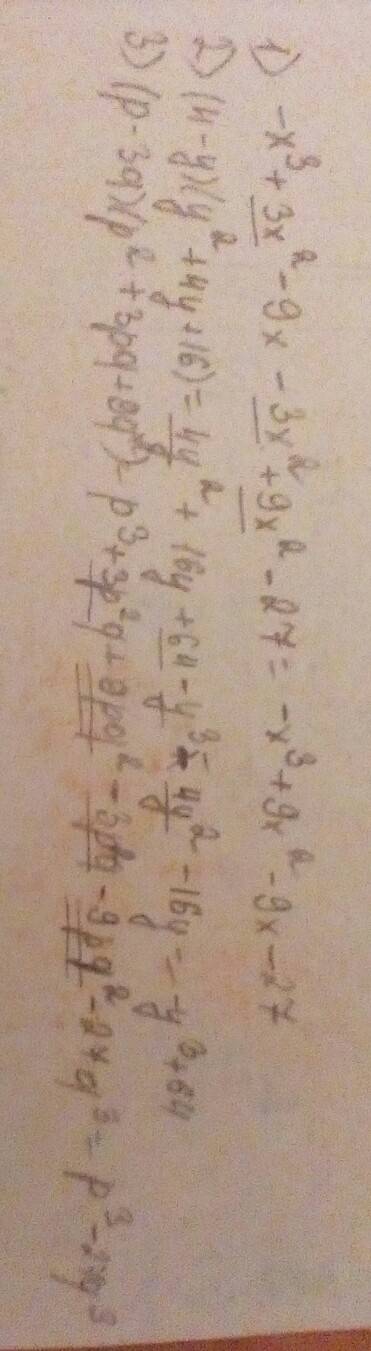 1) -x³ + 3x² - 9x - 3x² + 9x² - 27 = -x³ + 9x² - 9x - 27
2) (4-y)(y² + 4y + 16) = 4y² + 16y + 64 - y³ - 4y² - 16y = -y³ + 64
3) (p-3q)(p² + 3pq + 9q²) - p³ + 3p²q + 9pq² - 3p²q - 9pq² - 27q³ = p³ - 27q³